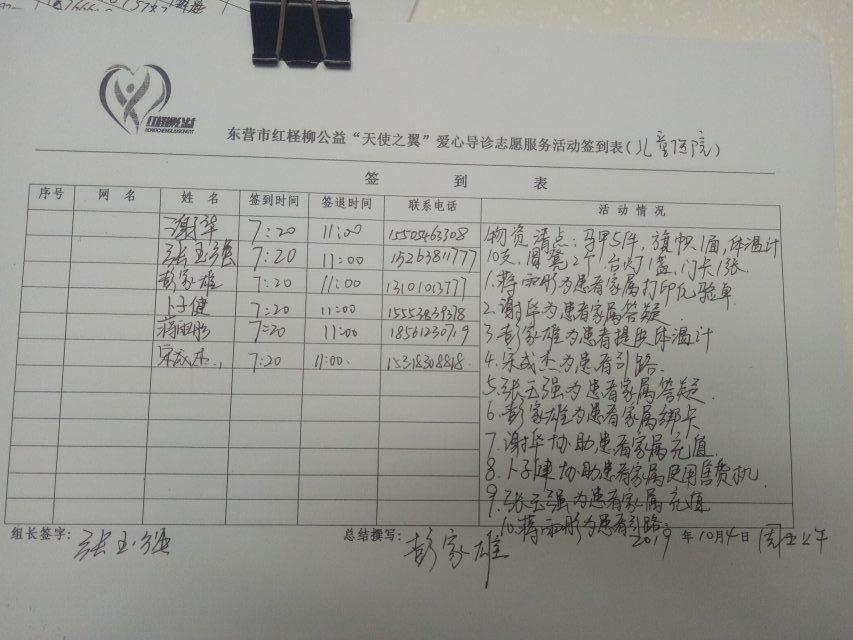 红柽柳公益
东营市红柽柳公益“天使之翼”爱心导诊志愿服务活动签到表(儿童医院)
签 到 表
序号 网 名 姓 名 签到时间 签退时间 联系电话 活 动 情 况
谢华 7:20 11:00 15505463308
张玉强 7:20 11:00 15263811777
彭家雄 7:20 11:00 13101013777
卜子健 7:20 11:00 15553839378
蒋雨彤 7:20 11:00 18561230719
宋成杰 7:20 11:00 15318308818
物资清点:马甲5件,旗帜1面,体温计
10支,圆凳2个,台灯1盏,门卡1张
1.蒋雨彤为患者家属打印化验单
2.谢华为患者家属答疑
3.彭家雄为患者提供体温计
4.宋成杰为患者引路
5.张玉强为患者家属答疑
6.彭家雄为患者家属绑卡
7.谢华协助患者家属充值
8.卜子健协助患者家属使用售货机
9.张玉强为患者家属充值
10.蒋雨彤为患者引路
组长签字:张玉强 总结撰写:彭家雄 2019年10月4日 周五上午